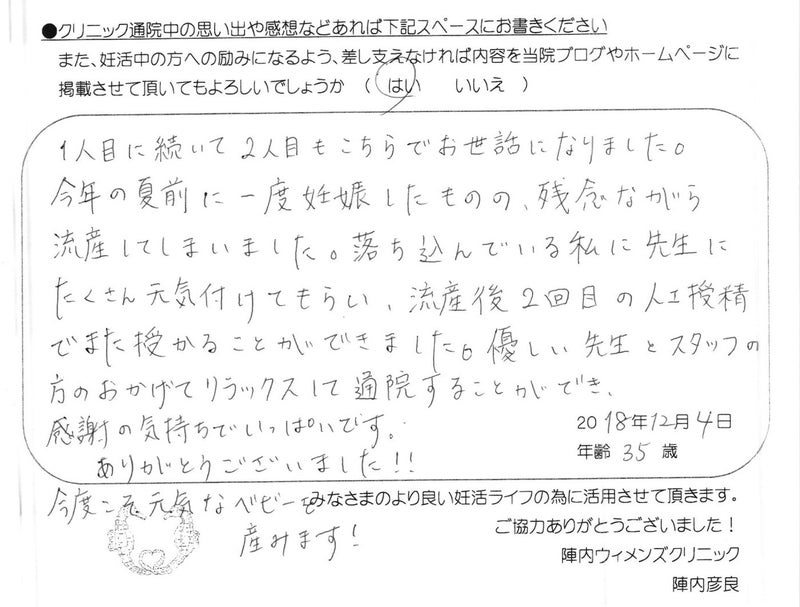 ●クリニック通院中の思い出や感想などあれば下記スペースにお書きください
また、妊活中の方への励みになるよう、差し支えなければ内容を当院ブログやホームページに
掲載させて頂いてもよろしいでしょうか （ はい いいえ ）
1人目に続いて2人目もこちらでお世話になりました。
今年の夏前に一度妊娠したものの、残念ながら
流産してしまいました。落ち込んでいる私に先生に
たくさん元気付けてもらい、流産後2回目の人工授精
でまた授かることができました。優しい先生とスタッフの
方のおかげでリラックスして通院することができ、
感謝の気持ちでいっぱいです。
ありがとうございました!!
2018年12月4日
年齢 35 歳
今度こそ元気なベビーを
産みます!
みなさまのより良い妊活ライフの為に活用させて頂きます。
ご協力ありがとうございました！
陣内ウィメンズクリニック
陣内彦良